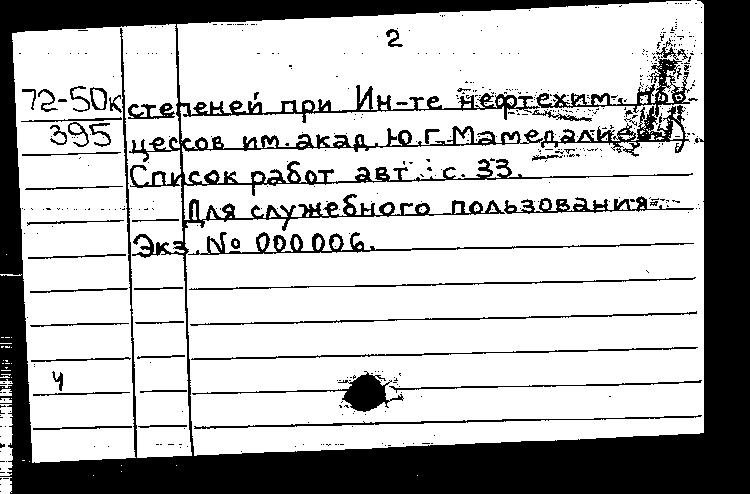 2
72-50к степеней при Ин-те нефтехим. про-
395 цессов им. акад. Ю.Г. Мамедалиева)
Список работ авт.: с. 33.
Для служебного пользования.
Экз. № 000006.
4